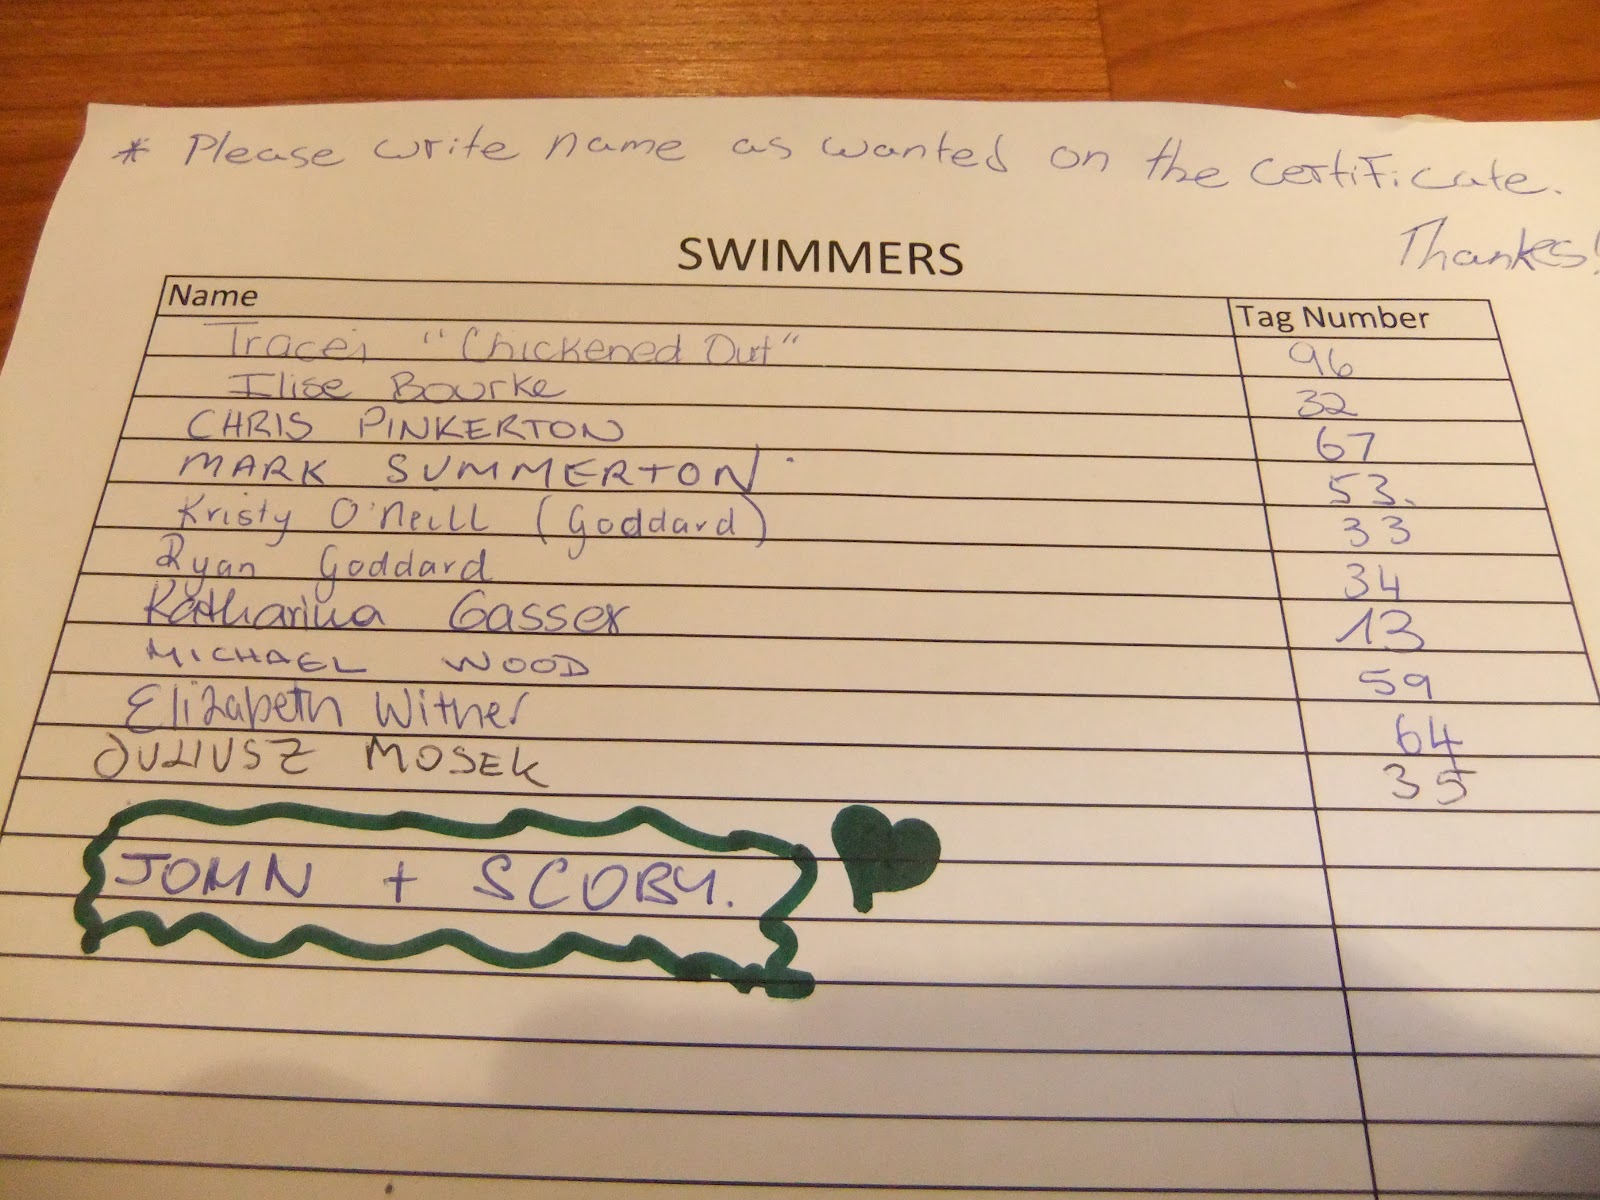 * Please write name as wanted on the certificate.
Thankes!
SWIMMERS
Name Tag Number
Tracei "Chickened Out" 96
Ilise Bourke 32
CHRIS PINKERTON 67
MARK SUMMERTON 53.
Kristy O'Neill (Goddard) 33
Ryan Goddard 34
Katharina Gasser 13
MICHAEL WOOD 59
Elizabeth Wither 64
JULIUSZ MOSEK 35
JOHN + SCOBY.